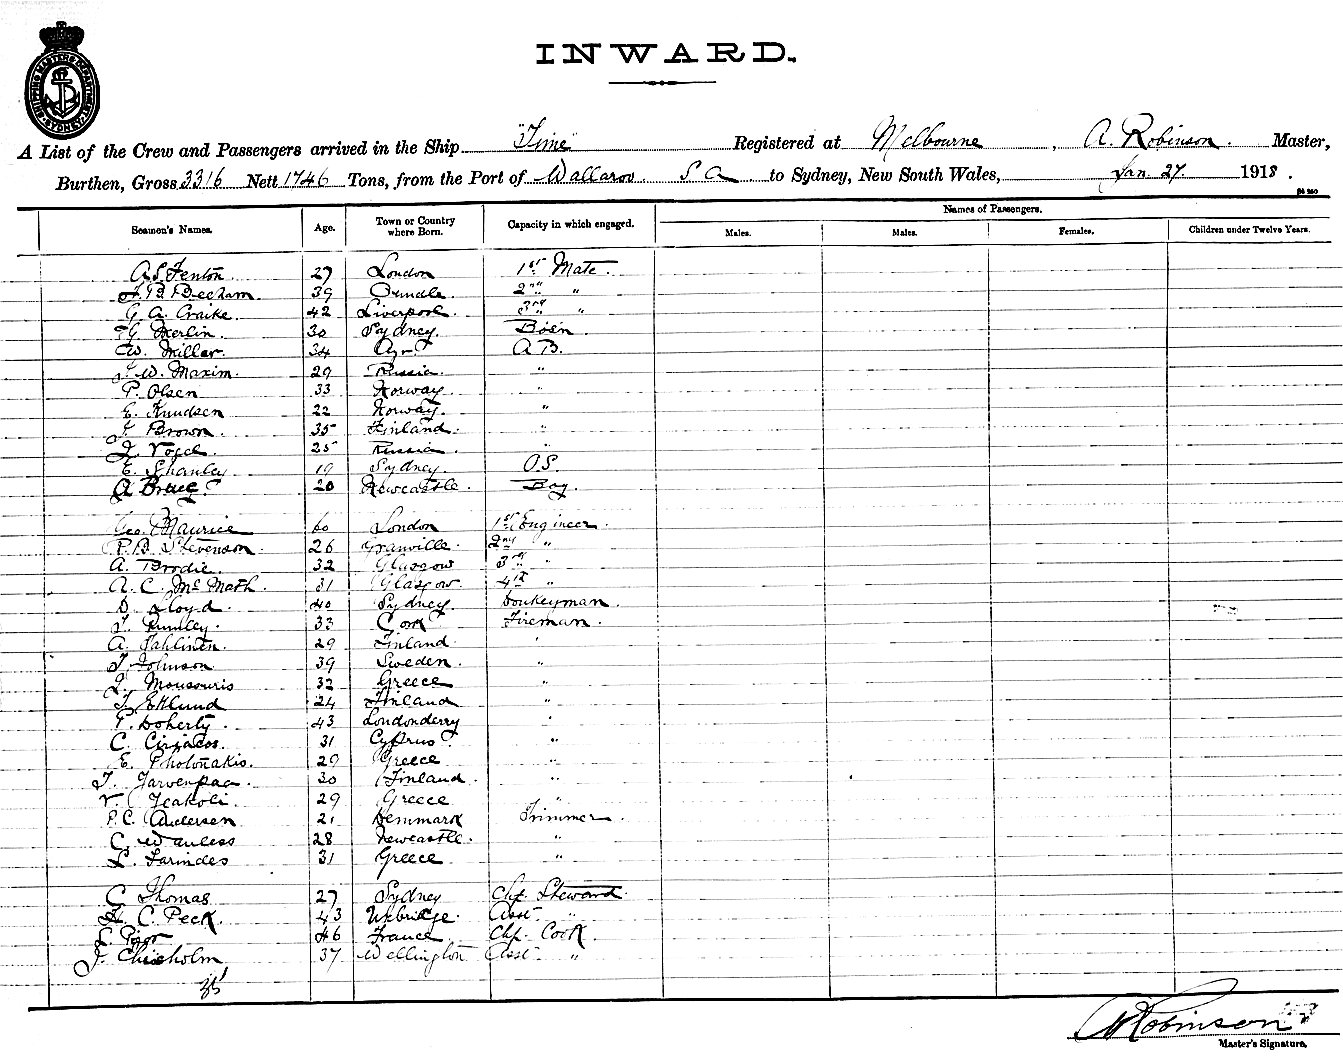 SHIPPING MASTERS DEPARTMENT SYDNEY
INWARD.
A List of the Crew and Passengers arrived in the Ship "Time" Registered at Melbourne, A. Robinson. Master,
Burthen, Gross 3316 Nett 1746 Tons, from the Port of Wallaroo S A to Sydney, New South Wales, Jan. 27 1918.
Names of Passengers.
Seamen's Names. Age. Town or Country where Born. Capacity in which engaged. Males. Males. Females. Children under Twelve Years.
A.S. Fenton. 27 London 1st Mate.
B. Beecham. 39 Oundle. 2nd "
G. A. Craike. 42 Liverpool. 3rd "
G. Merlin. 30 Sydney. Bosn
W. Millar. 34 Ayr A B.
J. W. Maxim. 29 Russia. "
P. Olsen 33 Norway. "
E. Knudsen 22 Norway. "
J. Brown. 35 Finland. "
Vogel. 25 Russia. "
E. Shanley 19 Sydney. O.S.
A Bruce 20 Newcastle. Boy.
Geo. Maurice 60 London 1st Engineer.
P. B. Stevenson. 26 Granville. 2nd "
A. Brodie. 32 Glasgow 3rd "
A. C. McMath. 31 Glasgow. 4th "
D. Lloyd. 40 Sydney. Donkeyman.
33 Cork Fireman.
A. Tahlinen. 29 Finland "
J. Johnson 39 Sweden. "
Moussouris 32 Greece "
J. Eklund 24 Finland "
P. Doherty. 43 Londonderry "
C. Ciriacos. 31 Cyprus. "
E. Pholonakis. 29 Greece "
J. Jarvenpaa. 30 Finland. "
29 Greece "
P. C. Andersen 21 Denmark Trimmer.
C. Wanless 28 Newcastle. "
L. Farindes 31 Greece "
C. Thomas 27 Sydney Chf. Steward.
H. C. Peck. 43 Uxbridge. Asst. "
46 France Chf. Cook.
J. Chisholm 37 Wellington Asst. "
35
A Robinson
Master's Signature.